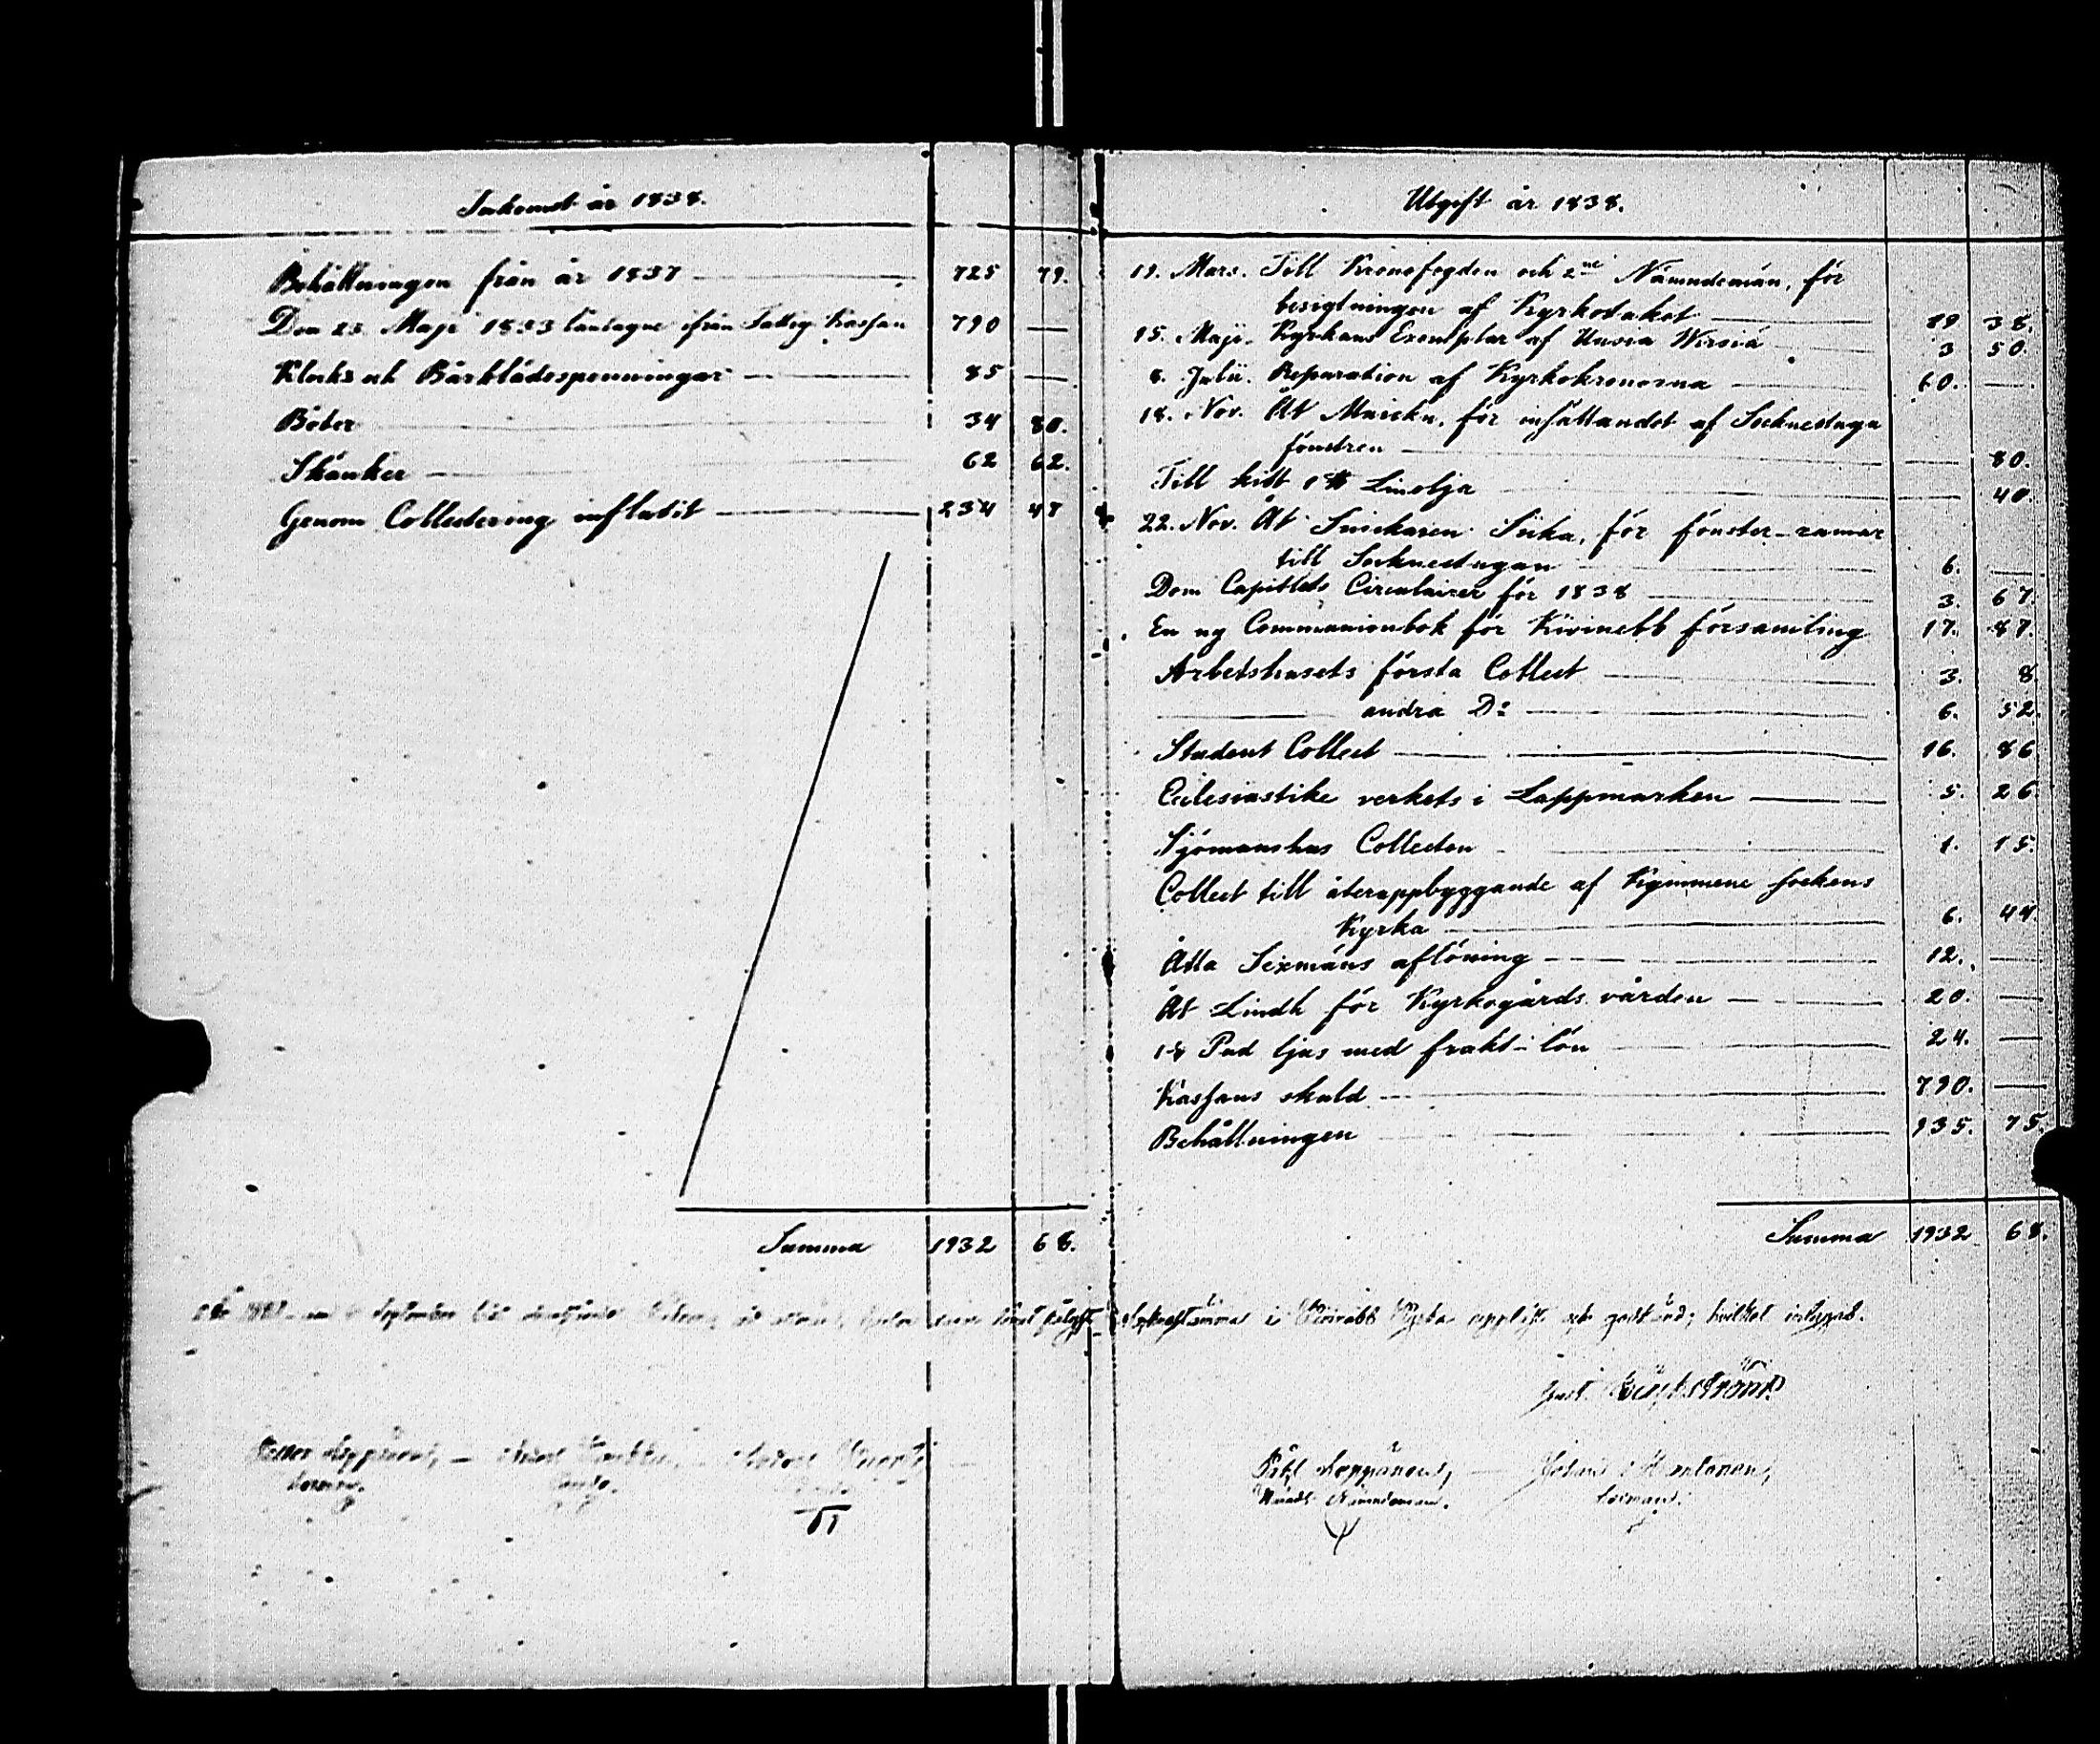 Inkomst år 1838.
Behållningen från år 1837 — 725 79.
Den 23 Maji 1833 låntagne ifrån Fattig Kassan 790 —
Klock och Bårklädespenningar — 85 —
Böter 34 80.
Skänker — 62 62.
Genom Collectering influtit — 234 47
Summa 1932 68.
Utgift år 1838.
19. Mars. Till Kronofogden och 2ne Nämndemän, för
besigtningen af Kyrkotaket — 19 38.
15. Maji. Kyrkans Exemplar af Uusia Wirsiä — 3 50.
8. Julii. Reparation af Kyrkokronorna — 60. —
18. Nov. Åt Muicku, för insättandet af Socknestuga
fönstren — 80.
Till kitt 1 ℔ Linolja — 40.
22. Nov. Åt Snickaren Siika, för fönster-ramar
till Socknestugan — 6. —
Dom Capitlets Circulairer för 1838 — 3. 67.
En ny Communionbok för Kivinebb församling 17. 87.
Arbetshusets första Collect — 3. 8
— andra Do — 6. 52.
Student Collect — 16. 86
Ecclesiastike verkets i Lappmarken — 5. 26
Sjömanshus Collecten 1. 15.
Collect till återuppbyggande af Kymmene Sockens
Kyrka — 6. 44.
Åtta Sexmäns aflöning — 12. —
Åt Lindh för Kyrkogårds vården — 20. —
18 Pud ljus med frakt-lön 24. —
Kassans skuld — 790. —
Behållningen 935. 75.
Summa 1932 68.
September i Kivinebb Kyrka uppläst och godkänd; hvilket intygas.
Gust.
Petter Leppänen, —
Leppänen, — Mantonen,
Nämndeman.